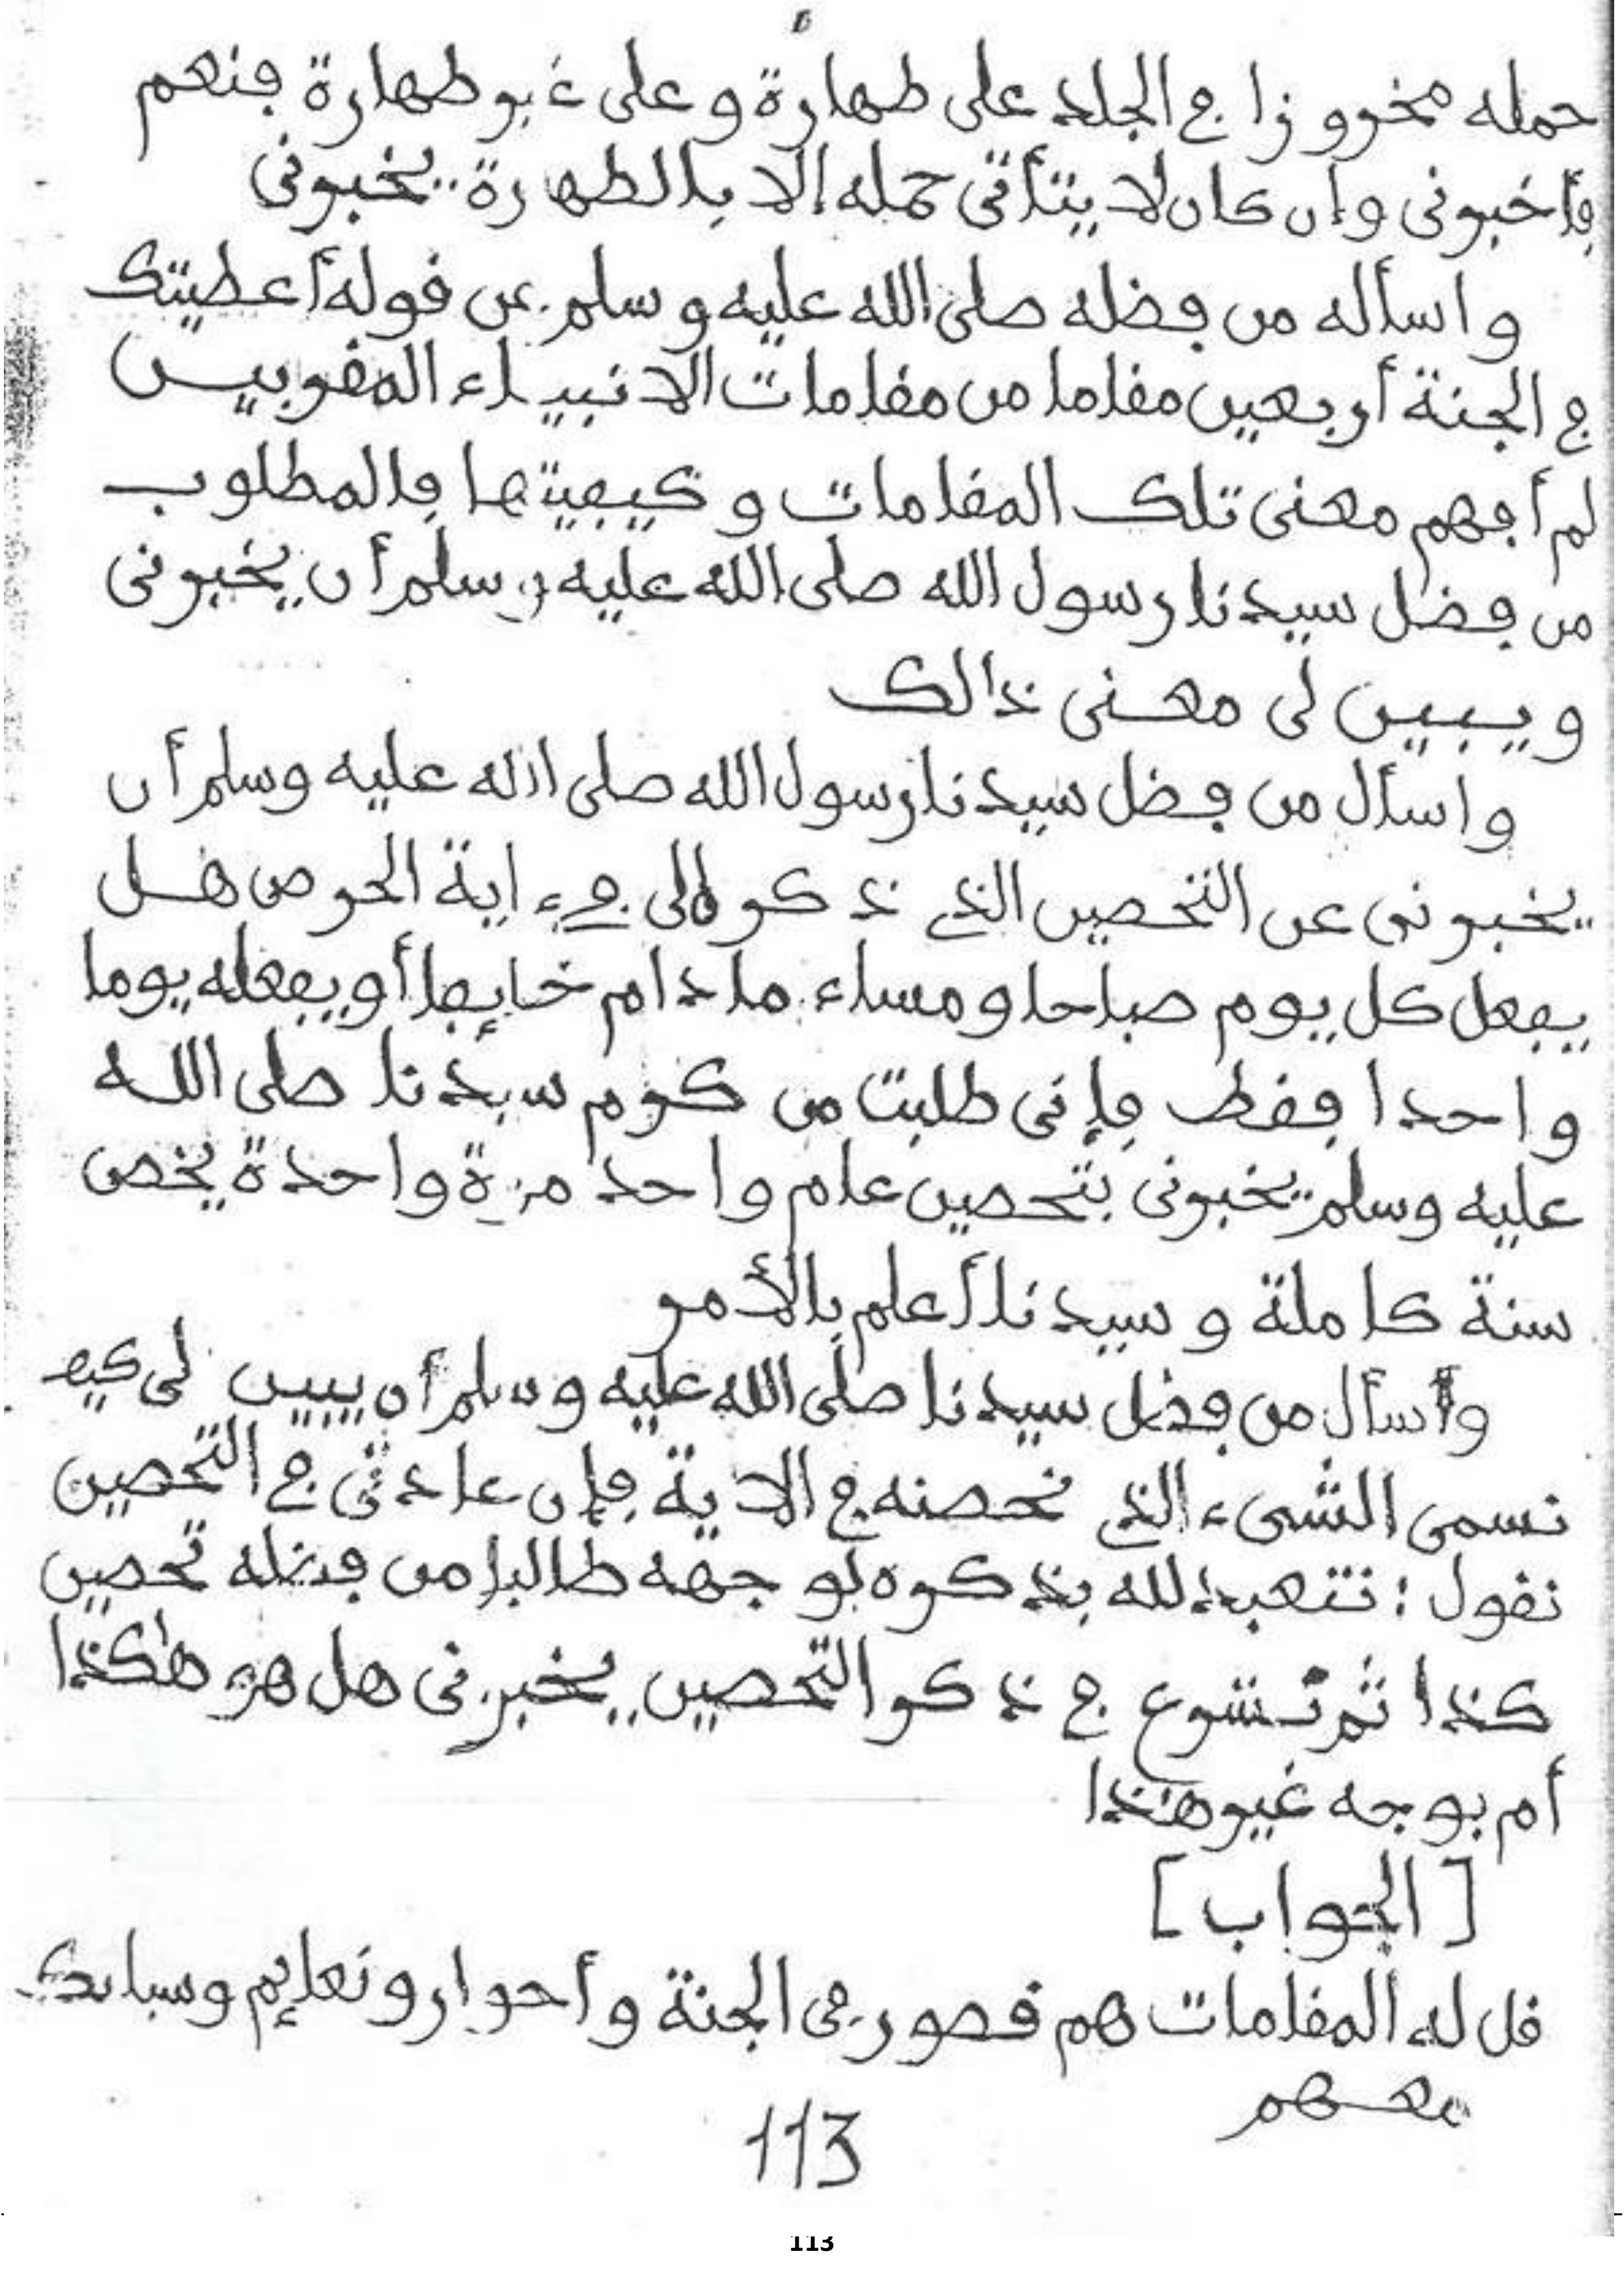 حمله مخروزا في الجلد على طهارة وعلى غير طهارة فنعم
فأخبرونى وإن كان لا يتأتى حمله إلا بالطهارة يخبرونى
واسأله من فضله صلى الله عليه وسلم عن قوله أعطيتك
في الجنة أربعين مقاما من مقامات الانبياء المقربيـن
لم أفهم معنى تلك المقامات وكيفيتها فالمطلوب
من فضل سيدنا رسول الله صلى الله عليه وسلم أن يخبرونى
ويبين لى معنى ذالك
واسأل من فضل سيدنا رسول الله صلى الله عليه وسلم أن
يخبرونى عن التحصين الذي ذكر لى في ءاية الحرص هل
يفعل كل يوم صباحا ومساء ما دام خايفا أو يفعله يوما
واحدا فقط فإنى طلبت من كرم سيدنا صلى الله
عليه وسلم يخبرونى بتحصين عام واحد مرة واحدة يخص
سنة كاملة وسيدنا أعلم بالأمر
وأسأل من فضل سيدنا صلى الله عليه وسلم أن يبين لى كيف
نسمى الشىء الذي نحصنه في الاية فإن عادتى في التحصين
نقول : نتعبد لله بذكره لوجهه طالبا من فضله تحصين
كذا ثم نشرع في ذكر التحصين يخبرنى هل هو هاكذا
أم بوجه غير هذا
[ الجواب ]
قل له المقامات هم قصور فى الجنة وأحوار ونعايم
معهم
113
113